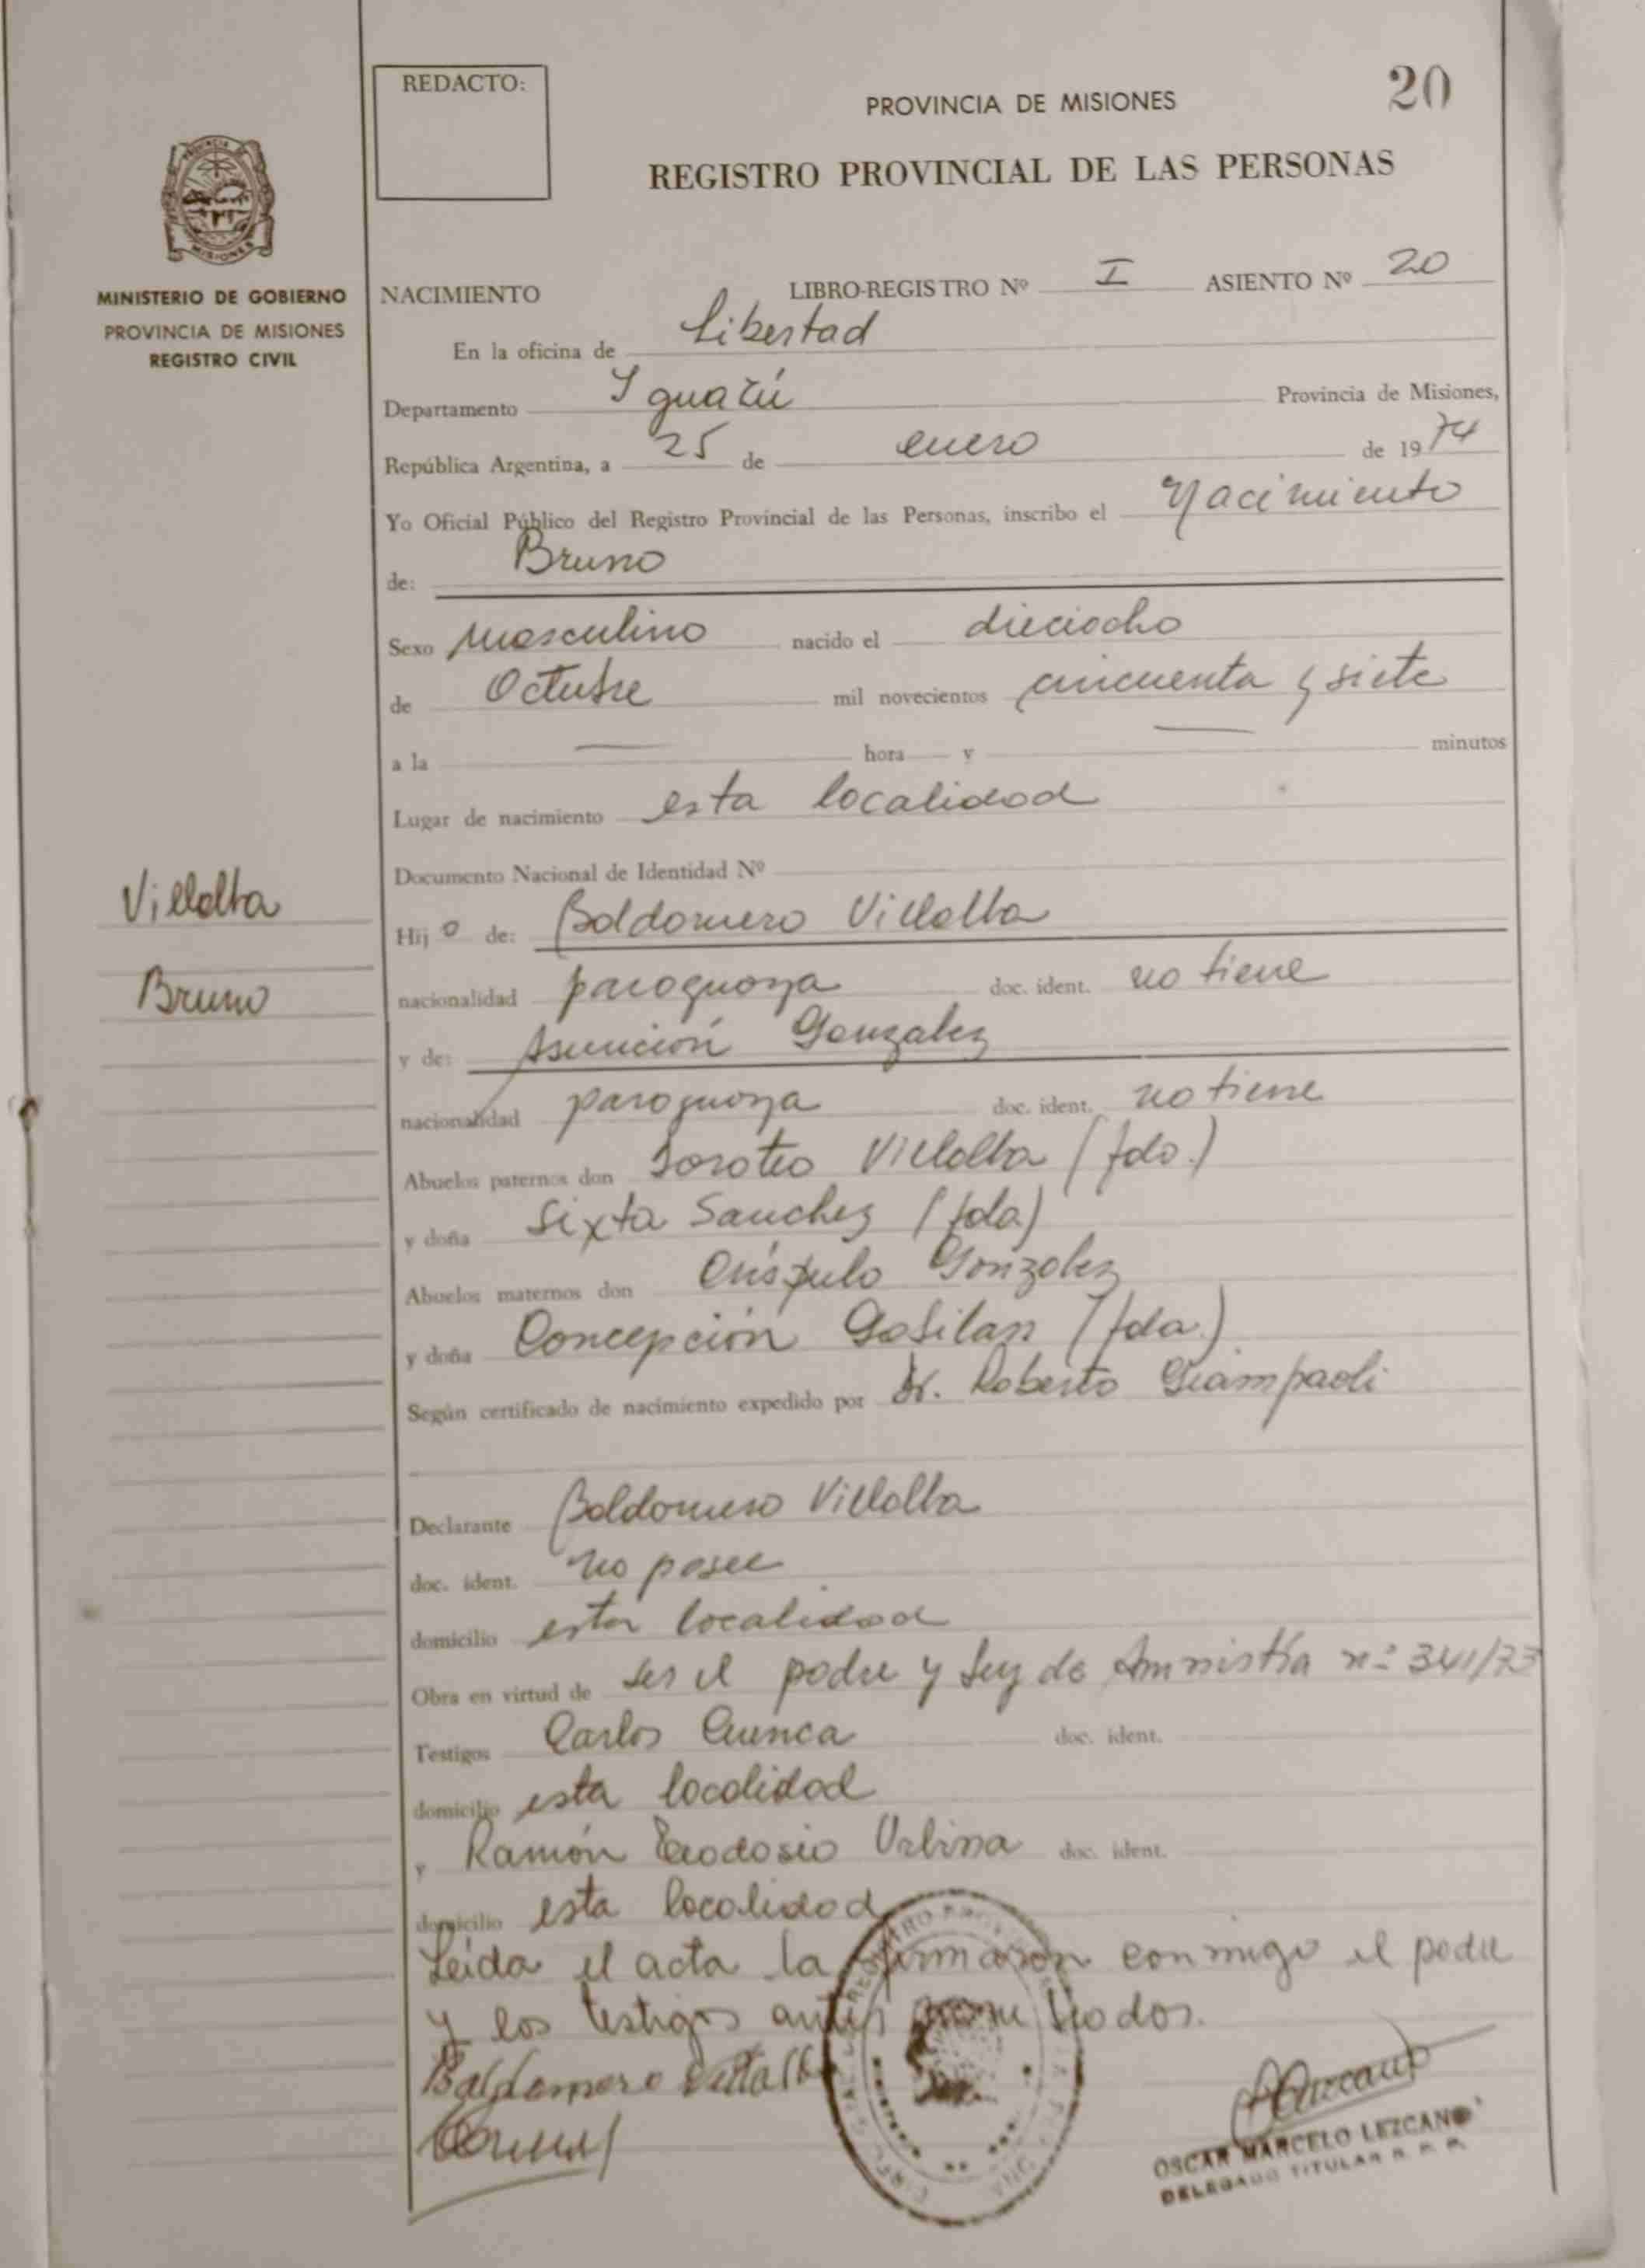 20
REDACTO:
PROVINCIA DE MISIONES
REGISTRO PROVINCIAL DE LAS PERSONAS
MINISTERIO DE GOBIERNO
PROVINCIA DE MISIONES
REGISTRO CIVIL
NACIMIENTO LIBRO-REGISTRO Nº I ASIENTO Nº 20
En la oficina de Libertad
Departamento Iguazú Provincia de Misiones,
República Argentina, a 25 de enero de 1974
Yo Oficial Público del Registro Provincial de las Personas, inscribo el Nacimiento
de: Bruno
Sexo Masculino nacido el dieciocho
de Octubre mil novecientos cincuenta y siete
a la — hora y — minutos
Lugar de nacimiento esta localidad
Documento Nacional de Identidad Nº
Villalba
Bruno
Hijo de: Baldomero Villalba
nacionalidad paraguaya doc. ident. no tiene
y de: Asunción Gonzalez
nacionalidad paraguaya doc. ident. no tiene
Abuelos paternos don Doroteo Villalba (fdo.)
y doña Sixta Sanchez (fda)
Abuelos maternos don Gonzalez
y doña Concepción (fda.)
Según certificado de nacimiento expedido por Dr. Roberto Giampaoli
Declarante Baldomero Villalba
doc. ident. no posee
domicilio esta localidad
Obra en virtud de ser el padre y Ley de Amnistía nº 341/73
Testigos Carlos Cuenca doc. ident.
domicilio esta localidad
y Ramón Teodosio Urbina doc. ident.
domicilio esta localidad
Leida el acta la firmaron conmigo el padre
y los testigos antes
Baldomero Villalba
OSCAR MARCELO LEZCANO
DELEGADO TITULAR R. P. P.